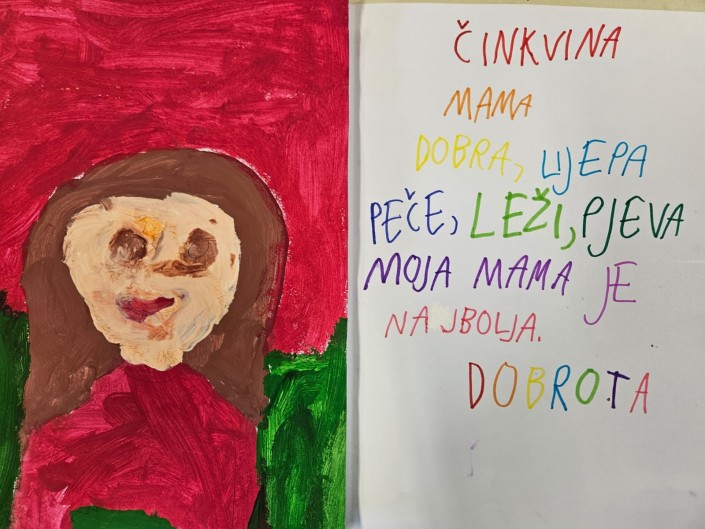 ČINKVINA
MAMA
DOBRA, LIJEPA
PEČE, LEŽI, PJEVA
MOJA MAMA JE
NAJBOLJA.
DOBROTA